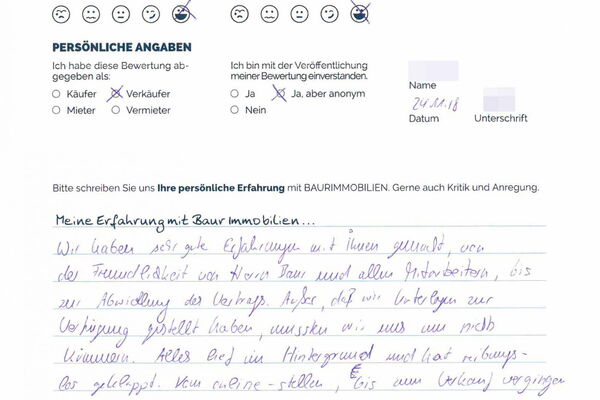 PERSÖNLICHE ANGABEN
Ich habe diese Bewertung ab-
gegeben als:
Käufer Verkäufer
Mieter Vermieter
Ich bin mit der Veröffentlichung
meiner Bewertung einverstanden.
Ja Ja, aber anonym
Nein
Name
24.11.18
Datum Unterschrift
Bitte schreiben Sie uns Ihre persönliche Erfahrung mit BAURIMMOBILIEN. Gerne auch Kritik und Anregung.
Meine Erfahrung mit Baur Immobilien...
Wir haben sehr gute Erfahrungen mit Ihnen gemacht, von
der Freundlichkeit von Herrn Baur und allen Mitarbeitern, bis
zur Abwicklung des Vertrags. Außer, daß wir Unterlagen zur
Verfügung gestellt haben, mussten wir uns um nichts
kümmern. Alles lief im Hintergrund und hat reibungs-
los geklappt. Vom online-stellen, bis zum Verkauf vergingen